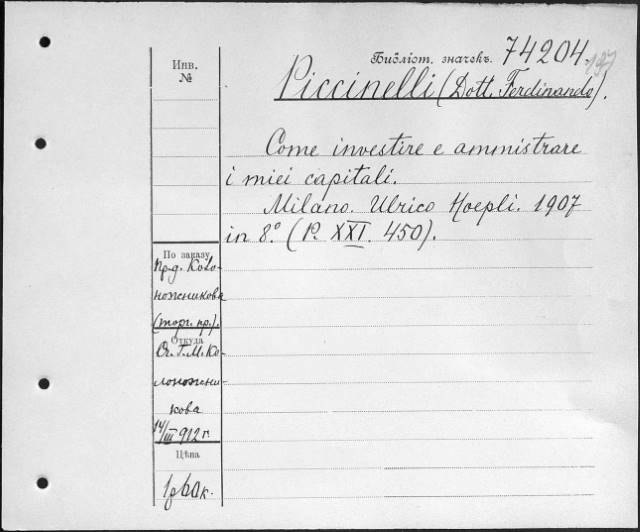 Библіот. значекъ. 74204.
Инв.
№
Piccinelli (Dott. Ferdinando).
Come investire e amministrare
i miei capitali.
Milano. Ulrico Hoepli. 1907
in 8.º (P. XXI. 450).
По заказу
пр-д. Коло-
ножникова
(торг. пр.).
Откуда
От Г. М. Ко-
лоножни-
кова
14/III 912 г.
Цѣна
1р 60к.